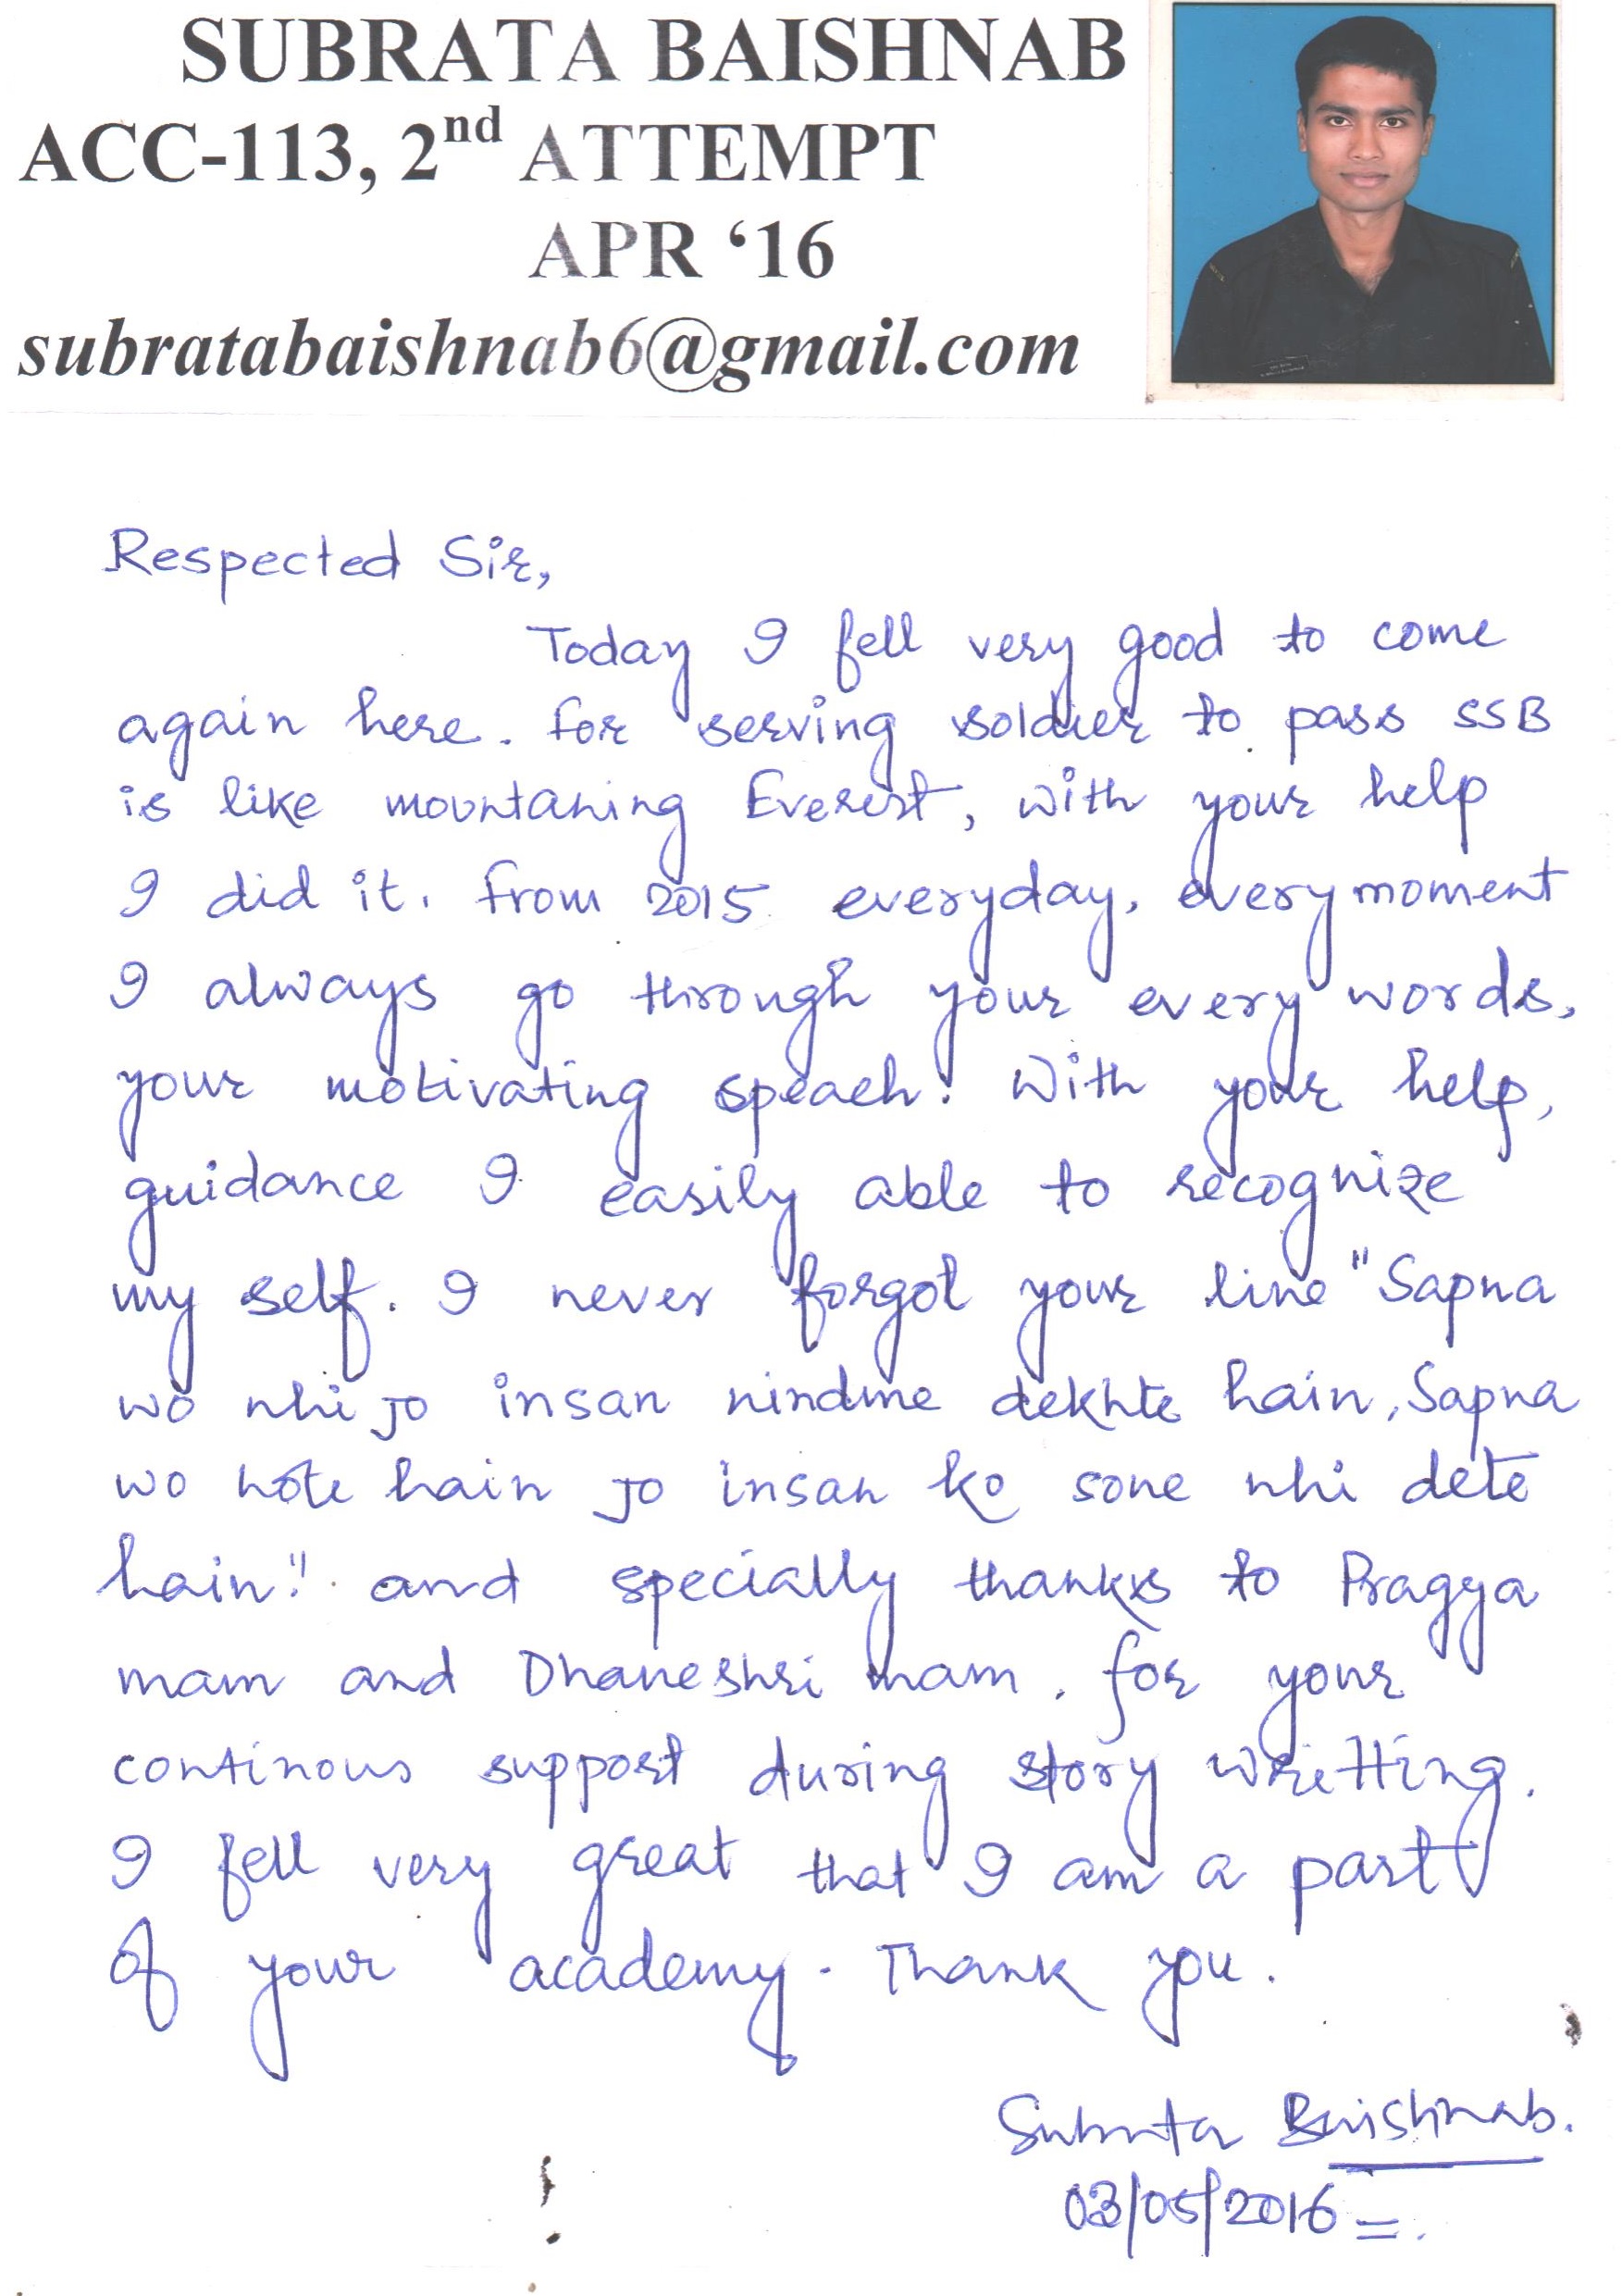 SUBRATA BAISHNAB
ACC-113, 2nd ATTEMPT
APR ‘16
subratabaishnab6@gmail.com
Respected Sir,
Today I fell very good to come
again here. for serving soldier to pass SSB
is like mountaning Everest, with your help
I did it. from 2015 everyday, every moment
I always go through your every words,
your motivating speach. With your help,
guidance I easily able to recognize
my self. I never forgot your line "Sapna
wo nhi jo insan nindme dekhte hain, Sapna
wo hote hain jo insan ko sone nhi dete
hain". and specially thanks to Pragya
mam and Dhaneshri mam. for your
continous support during story writting.
I fell very great that I am a part
of your academy. Thank you.
Subrata Baishnab.
03/05/2016